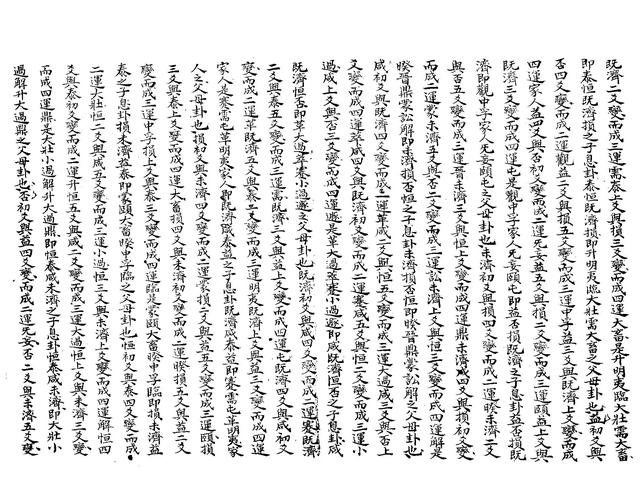 既濟三爻變而成二運需泰三爻與損三爻變而成四運大畜是升明夷臨大壯需大畜
即泰恒既濟損之子息卦泰恒既濟損即升明夷臨大壯需大畜之父母卦也益初爻與
否四爻變而成二運觀益二爻與損五爻變而成三運中孚益三爻與既濟上爻變而成
四運家人益四爻與否初爻變而成二運无妄益五爻與損二爻變而成三運頤益上爻與
既濟三爻變而成四運屯是觀中孚家人无妄頤屯即益否損既濟之子息卦益否損既
濟即觀中孚家人无妄頤屯之父母卦也未濟初爻與損四爻變而成二運睽未濟二爻
與否五爻變而成三運晉未濟三爻與恒上爻變而成四運鼎未濟四爻與損初爻變
而成二運蒙未濟五爻與否二爻變而成三運訟未濟上爻與恒三爻變而成四運解是
睽晉鼎蒙訟解即未濟損否恒之子息卦未濟損否恒即睽晉鼎蒙訟解之父母卦也
咸初爻與既濟四爻變而成二運革咸二爻與恒五爻變而成三運大過咸三爻與否上
爻變而成四運萃咸四爻與既濟初爻變而成二運蹇咸五爻與恒二爻變而成三運小
過咸上爻與否三爻變而成四運遯是革大過萃蹇小過遯即咸既濟恒否之子息卦咸
既濟恒否即革大過萃蹇小過遯之父母卦也既濟初爻與咸四爻變而成二運蹇既濟
二爻與泰五爻變而成三運需既濟三爻與益上爻變而成四運屯既濟四爻與咸初爻
變而成二運革既濟五爻與泰二爻變而成三運明夷既濟上爻與益三爻變而成四運
家人是蹇需屯革明夷家人即既濟咸泰益之子息卦既濟咸泰益即蹇需屯革明夷家
人之父母卦也損初爻與未濟四爻變而成二運蒙損二爻與益五爻變而成三運頤損
三爻與泰上爻變而成四運大畜損四爻與未濟初爻變而成二運睽損五爻與益二爻
變而成三運中孚損上爻與泰三爻變而成四運臨是蒙頤大畜睽中孚臨即損未濟益
泰之子息卦損未濟益泰即蒙頤大畜睽中孚臨之父母卦也恒初爻與泰四爻變而成
二運大壯恒二爻與咸五爻變而成三運小過恒三爻與未濟上爻變而成四運解恒四
爻與泰初爻變而成二運升恒五爻與咸二爻變而成三運大過恒上爻與未濟三爻變
而成四運鼎是大壯小過解升大過鼎即恒泰咸未濟之子息卦恒泰咸未濟即大壯小
過解升大過鼎之父母卦也否初爻與益四爻變而成二運无妄否二爻與未濟五爻變